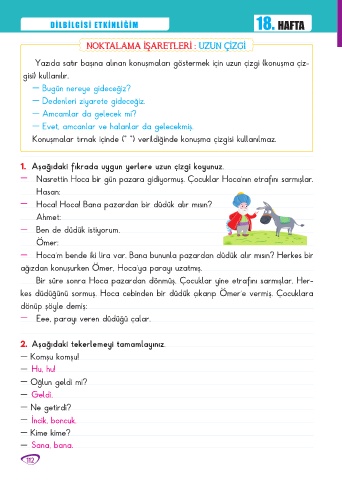 DİLBİLGİSİ ETKİNLİĞİM
18. HAFTA
NOKTALAMA İŞARETLERİ : UZUN ÇİZGİ
Yazıda satır başına alınan konuşmaları göstermek için uzun çizgi (konuşma çiz-
gisi) kullanılır.
— Bugün nereye gideceğiz?
— Dedenleri ziyarete gideceğiz.
— Amcamlar da gelecek mi?
— Evet, amcanlar ve halanlar da gelecekmiş.
Konuşmalar tırnak içinde (" ") verildiğinde konuşma çizgisi kullanılmaz.
1. Aşağıdaki fıkrada uygun yerlere uzun çizgi koyunuz.
— Nasrettin Hoca bir gün pazara gidiyormuş. Çocuklar Hoca'nın etrafını sarmışlar.
Hasan:
— Hoca! Hoca! Bana pazardan bir düdük alır mısın?
Ahmet:
— Ben de düdük istiyorum.
Ömer:
— Hoca'm bende iki lira var. Bana bununla pazardan düdük alır mısın? Herkes bir
ağızdan konuşurken Ömer, Hoca'ya parayı uzatmış.
Bir süre sonra Hoca pazardan dönmüş. Çocuklar yine etrafını sarmışlar. Her-
kes düdüğünü sormuş. Hoca cebinden bir düdük çıkarıp Ömer'e vermiş. Çocuklara
dönüp şöyle demiş:
— Eee, parayı veren düdüğü çalar.
2. Aşağıdaki tekerlemeyi tamamlayınız.
— Komşu komşu!
— Hu, hu!
— Oğlun geldi mi?
— Geldi.
— Ne getirdi?
— İncik, boncuk.
— Kime kime?
— Sana, bana.
112